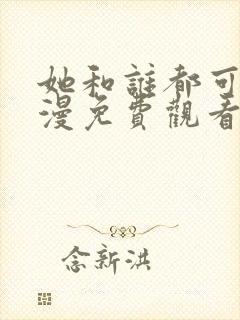 她和誰都可
漫免費觀看
念新洪